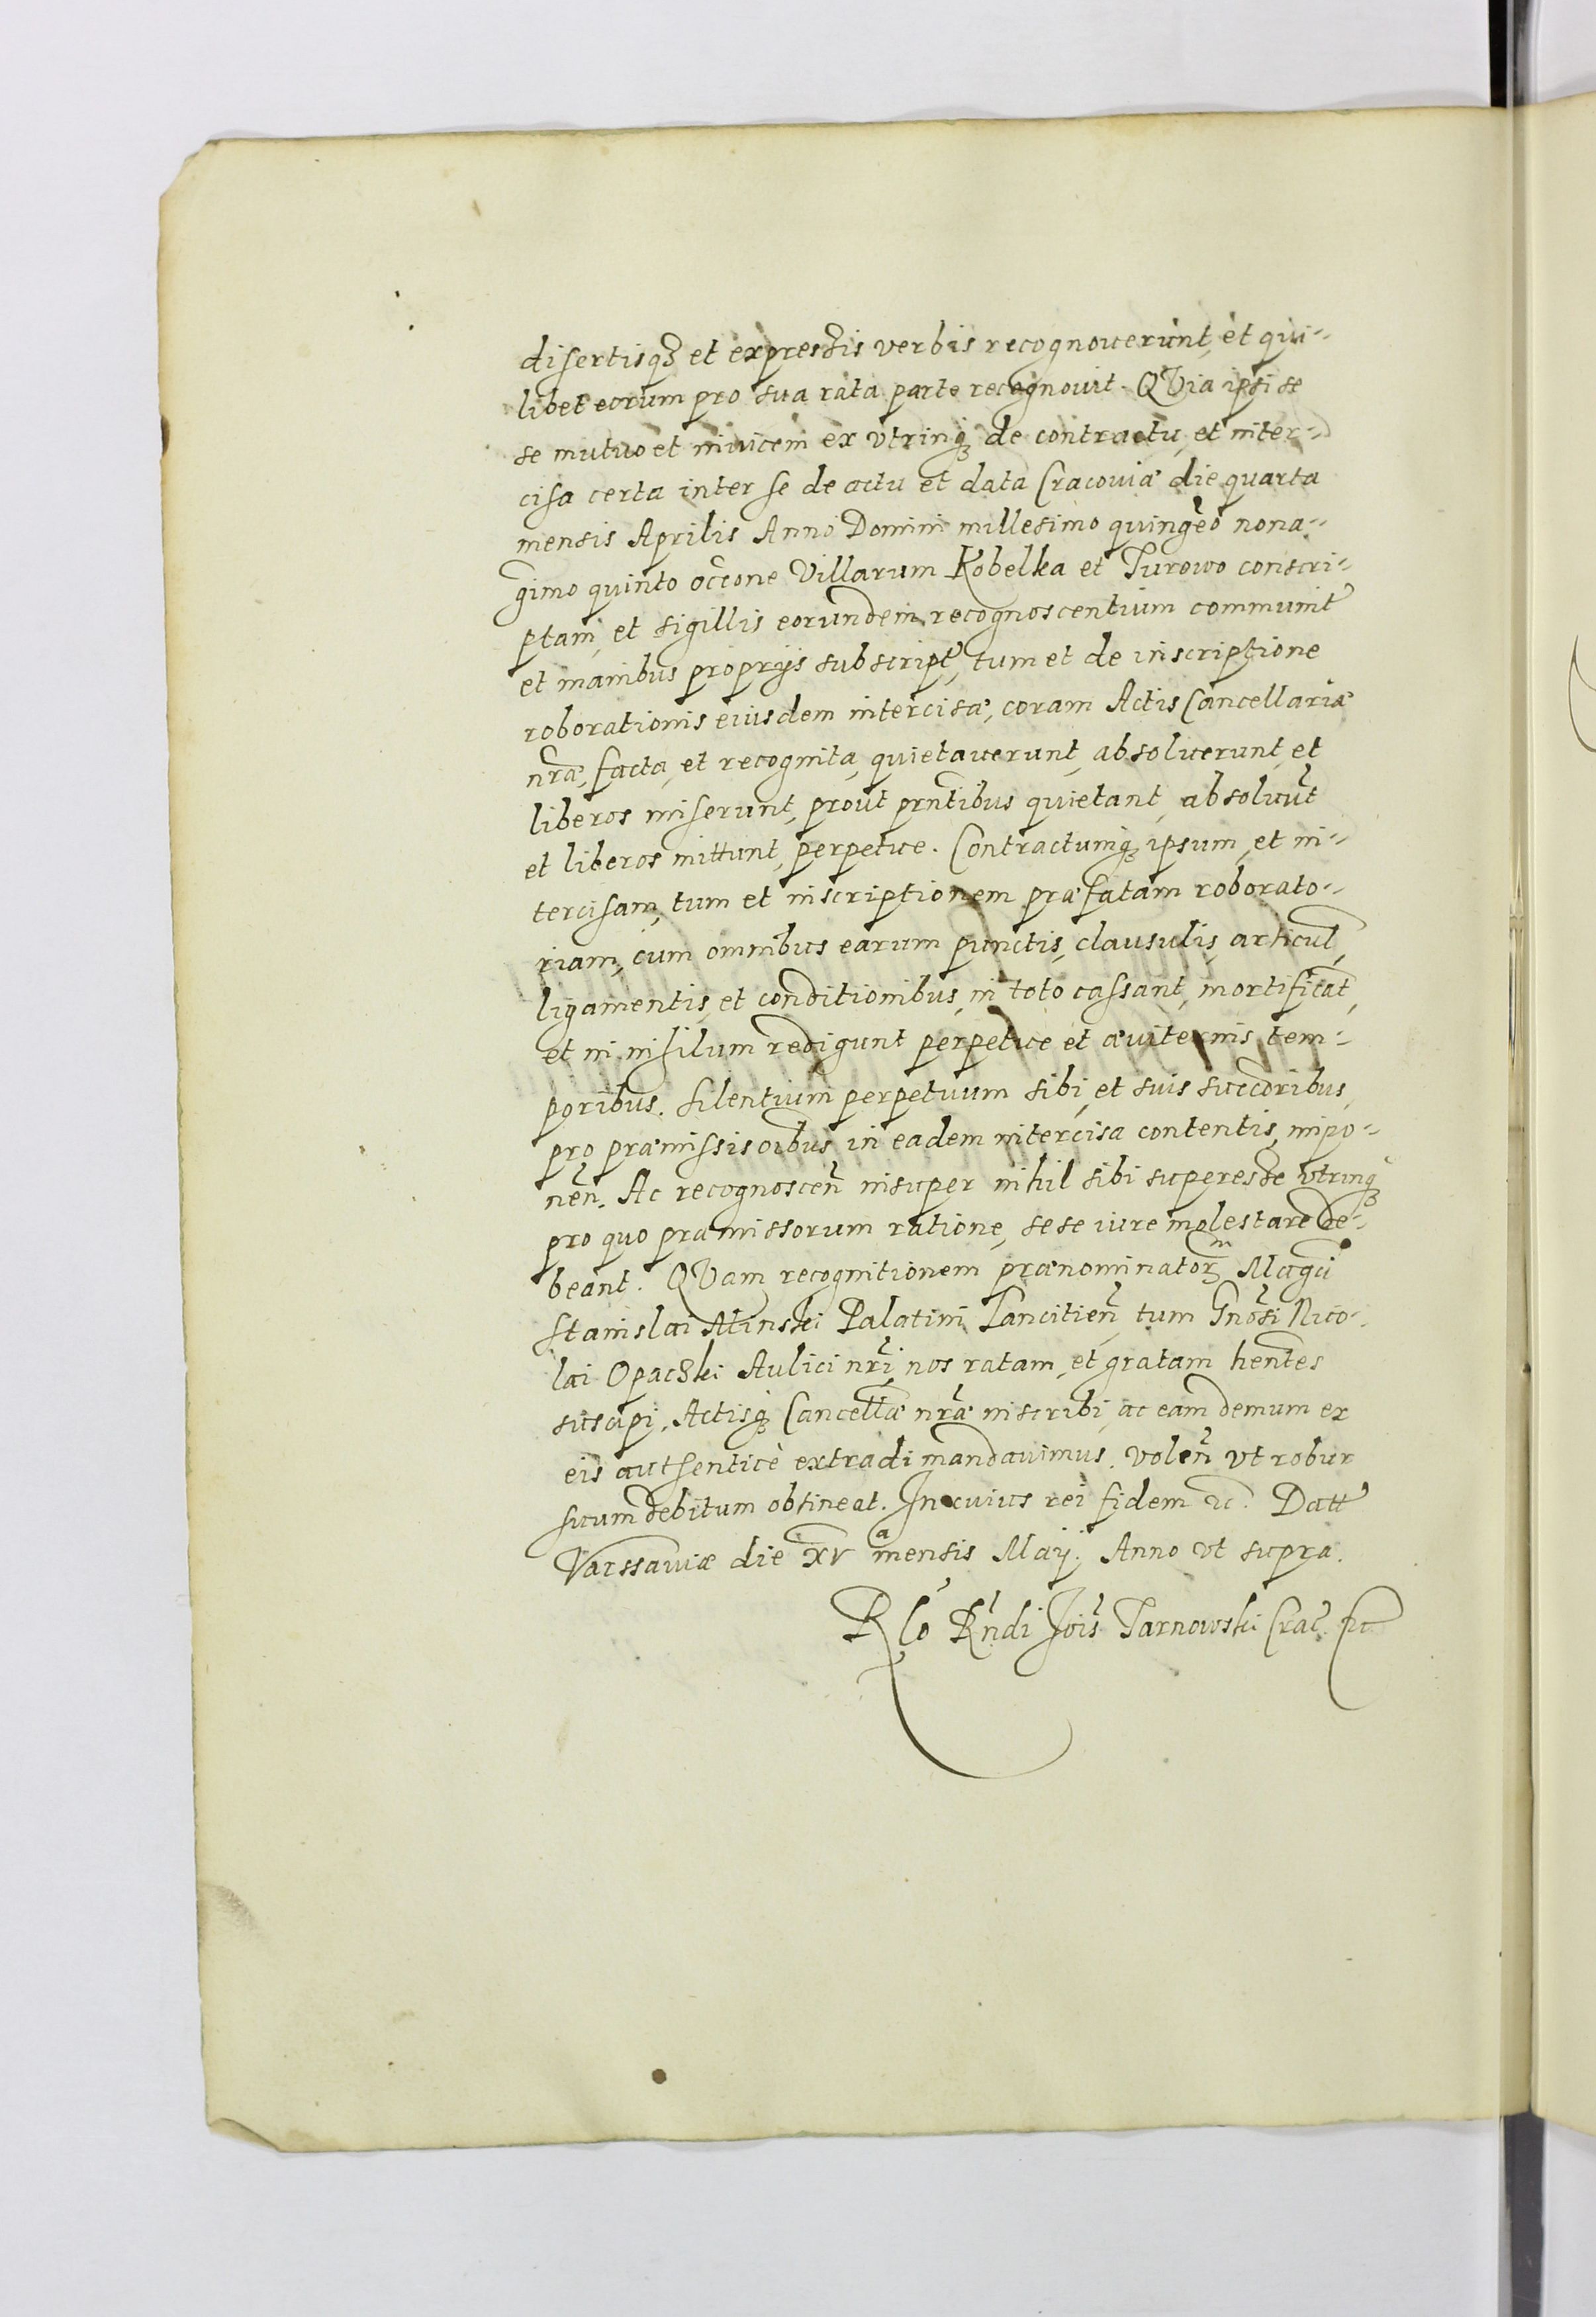 disertisq₃ et expressis verbis recognouerunt, et qui-
libet eorum pro sua rata parte recognouit. QVia ipsi se
se mutuo et inuicem ex vtrinq₃ de contractu, et inter-
cisa certa inter se de actu et data Cracouiæ die quarta
mensis Aprilis Anno Domini millesimo quingẽo nona-
gimo quinto occone Villarum Kobelka et Turowo conscri-
ptam, et sigillis eorundem recognoscentium communit
et manibus proprijs subscript, tum et de inscriptione
roborationis eiusdem intercisæ, coram Actis Cancellariæ
nrã, facta, et recognita, quietauerunt, absoluerunt, et
liberos miserunt, prout prntibus quietant, absoluũt
et liberos mittunt, perpetue. Contractumq₃ ipsum, et in-
tercisam, tum et inscriptionem præfatam roborato-
riam, cum omnibus earum punctis, clausulis, articul,
ligamentis, et conditionibus, in toto cassant, mortificãt,
et in nihilum redigunt perpetue et æuiternis tem-
poribus. Silentium perpetuum sibi, et suis succõribus,
pro præmissis oĩbus, in eadem intercisa contentis, impo-
neñ. Ac recognosceñ insuper nihil sibi superesse vtrinq₃
pro quo præmissorum ratione, sese iure molestare de-
beant. QVam recognitionem prænominator̃ Magci
Stanislai Minski Palatini Lancitieñ, tum Gnõsi Nico-
lai Opaczki Aulici nrĩ, nos ratam, et gratam hentes
suscipi, Actisq₃ Cancellæ nrã inscribi, ac eam demum ex
eis authenticè extradi mandauimus. Voleñ vt robur
suum debitum obtineat. In cuius rei fidem ꝛc. Datt
Varssauiæ die xv a mensis Maij. Anno vt supra.
Rlõ Rñdi Jois Tarnowski Crac̃.